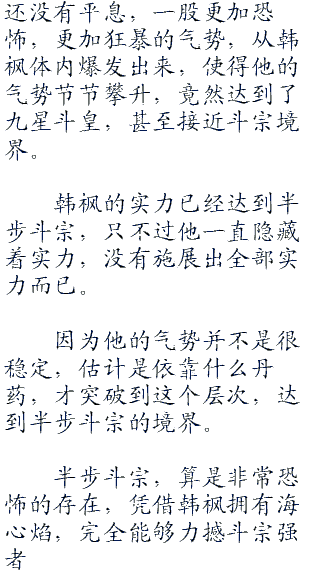 还没有平息，一股更加恐
怖，更加狂暴的气势，从韩
枫体内爆发出来，使得他的
气势节节攀升，竟然达到了
九星斗皇，甚至接近斗宗境
界。
韩枫的实力已经达到半
步斗宗，只不过他一直隐藏
着实力，没有施展出全部实
力而已。
因为他的气势并不是很
稳定，估计是依靠什么丹
药，才突破到这个层次，达
到半步斗宗的境界。
半步斗宗，算是非常恐
怖的存在，凭借韩枫拥有海
心焰，完全能够力撼斗宗强
者